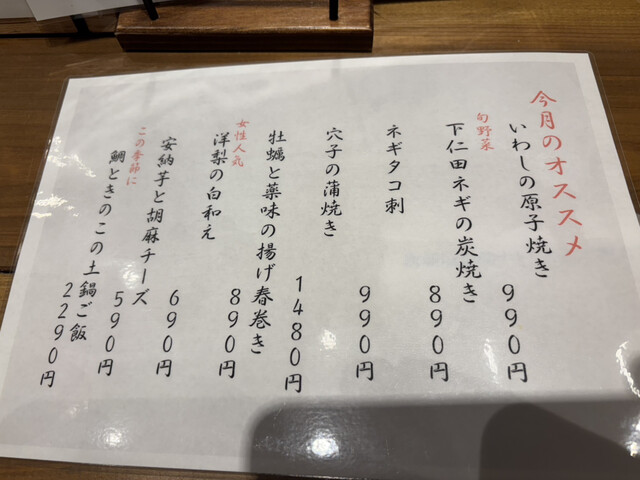 今月のオススメ
いわしの原子焼き 990円
旬野菜
下仁田ネギの炭焼き 890円
ネギタコ刺 990円
穴子の蒲焼き 1480円
牡蠣と薬味の揚げ春巻き 890円
女性人気
洋梨の白和え 690円
安納芋と胡麻チーズ 590円
この季節に
鯛ときのこの土鍋ご飯 2290円